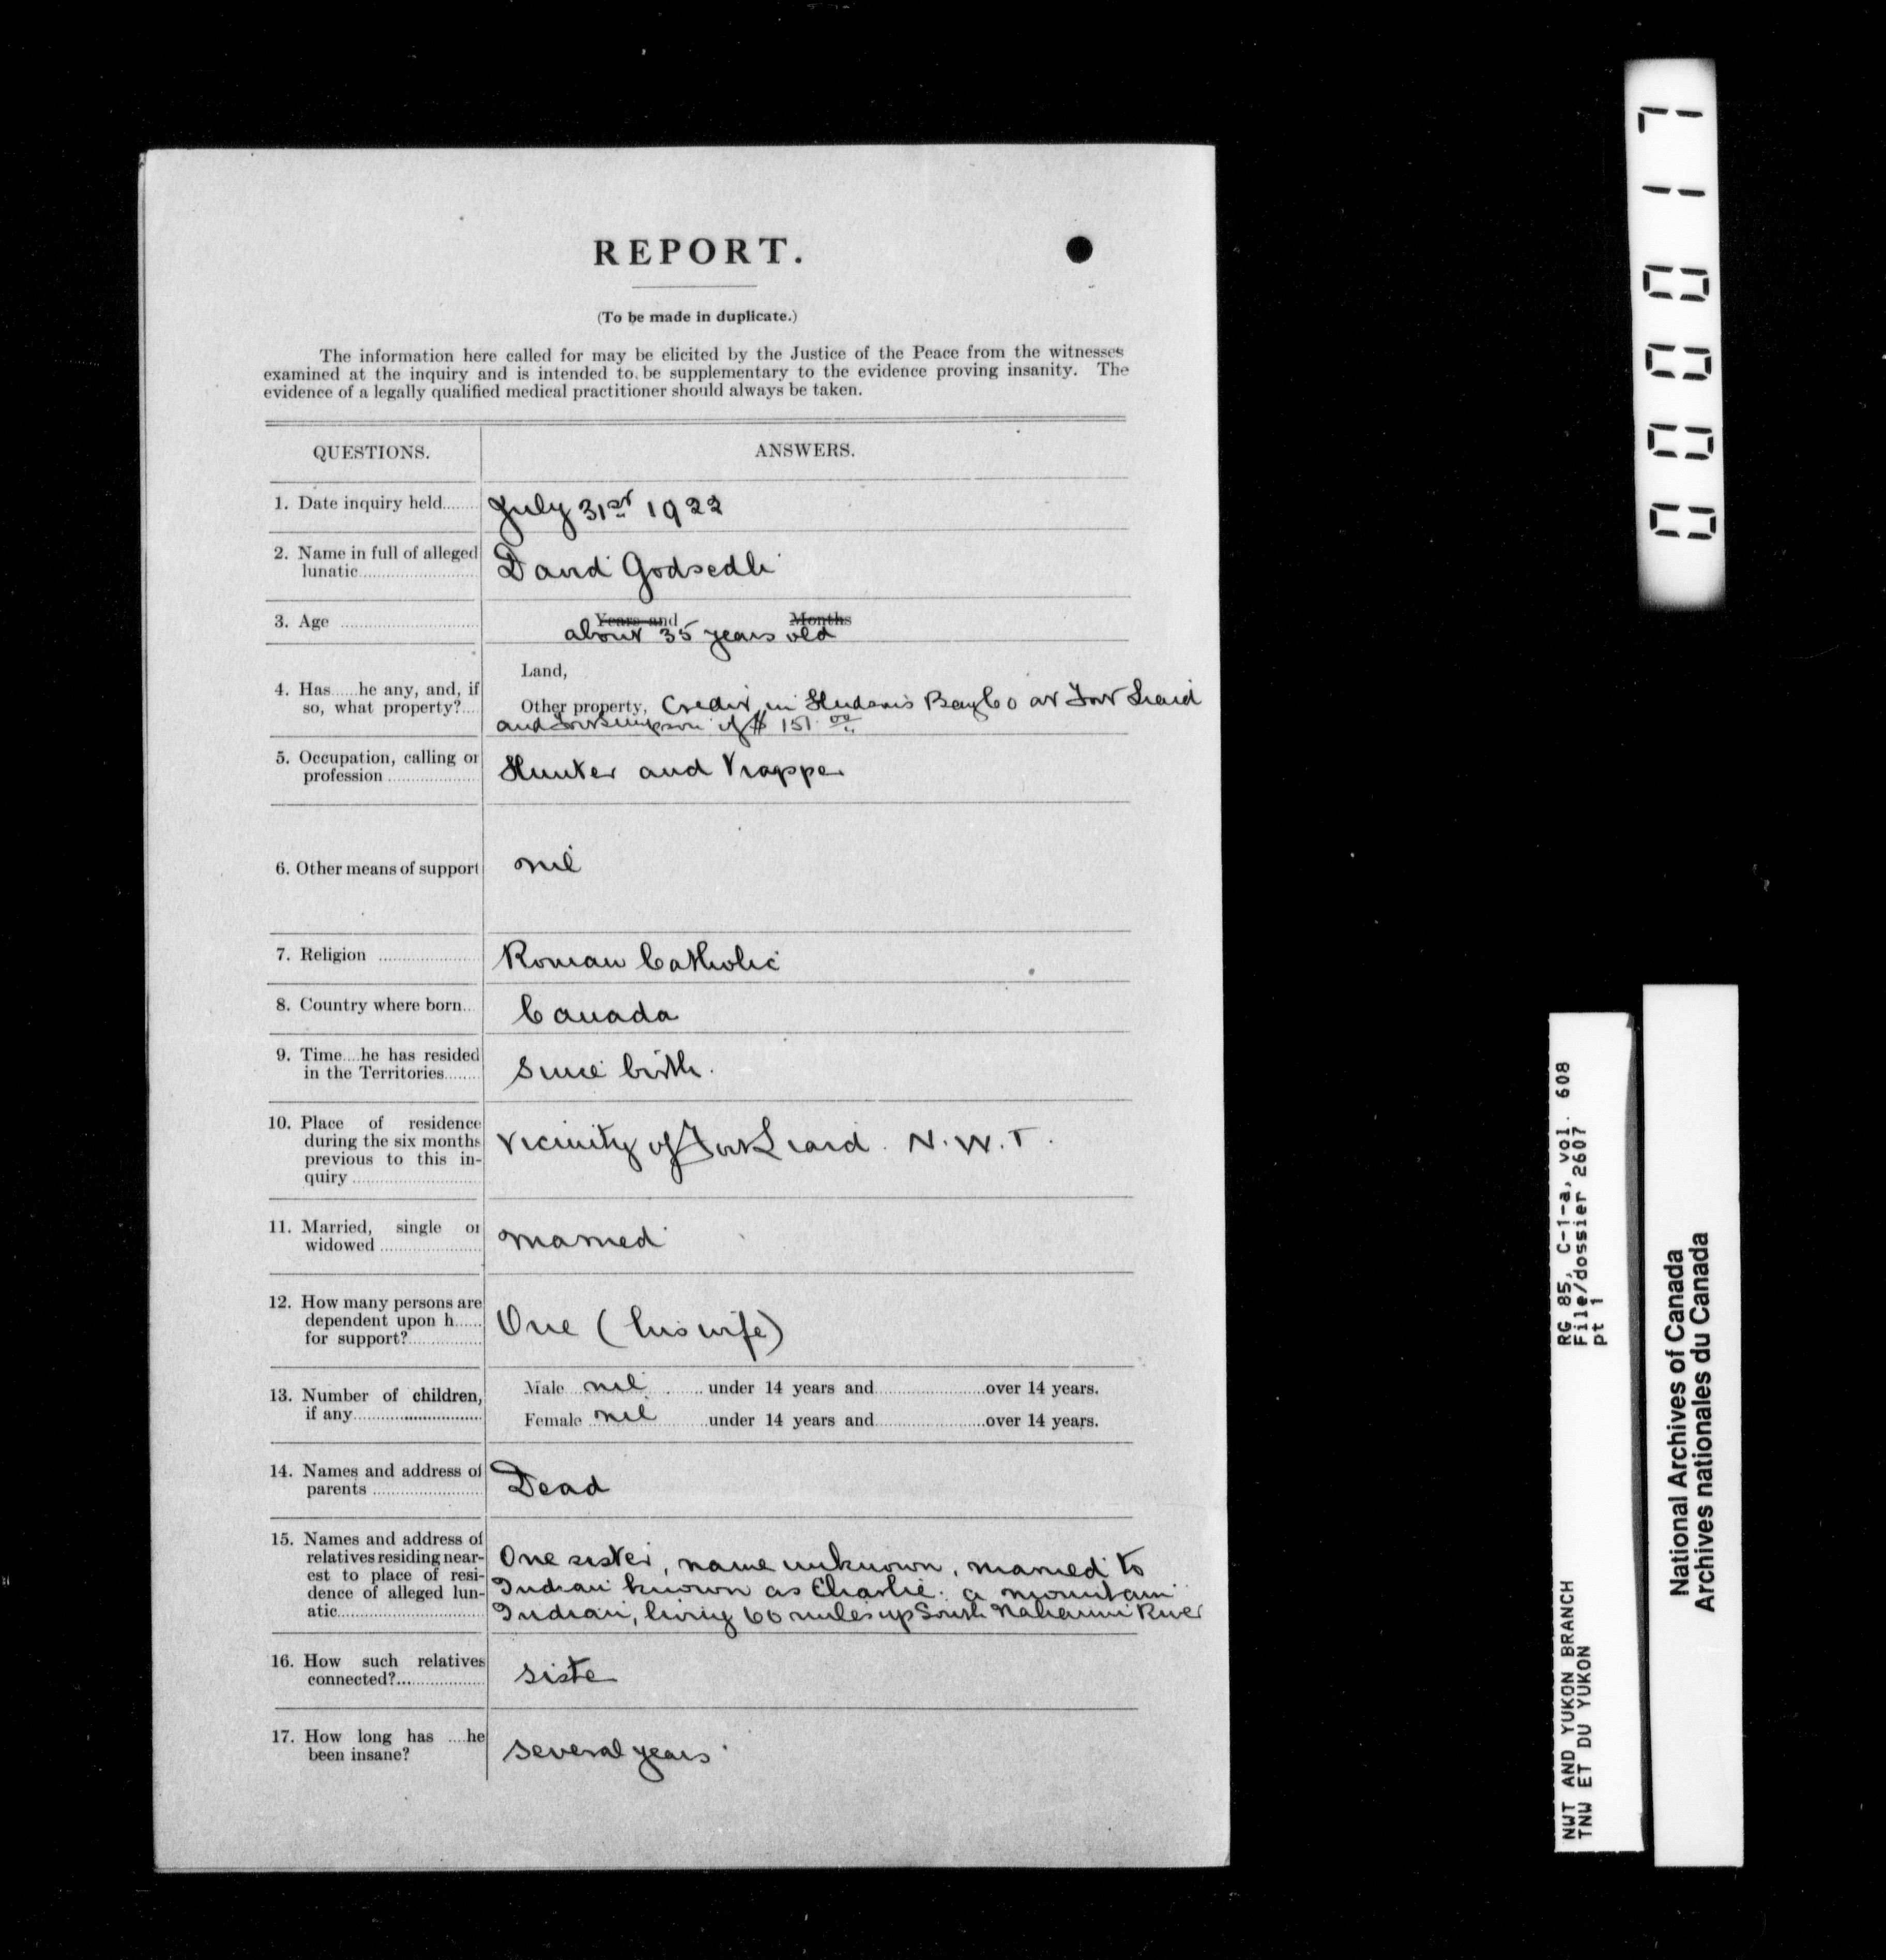 REPORT.
(To be made in duplicate.)
The information here called for may be elicited by the Justice of the Peace from the witnesses
examined at the inquiry and is intended to be supplementary to the evidence proving insanity. The
evidence of a legally qualified medical practitioner should always be taken.
QUESTIONS. ANSWERS.
1. Date inquiry held........ July 31st 1922
2. Name in full of alleged
lunatic........................ David Godsedhi
3. Age ............................ Years and Months
about 35 years old
Land,
4. Has......he any, and, if
so, what property?.... Other property, Credit in Hudson's Bay Co at Fort Liard
and Fort Simpson of $ 151.00
5. Occupation, calling or
profession ................... Hunter and Trapper
6. Other means of support nil
7. Religion ..................... Roman Catholic
8. Country where born... Canada
9. Time....he has resided
in the Territories........ Since birth.
10. Place of residence
during the six months
previous to this in-
quiry .......................... Vicinity of Fort Liard. N.W.T.
11. Married, single or
widowed ..................... married
12. How many persons are
dependent upon h......
for support?............... One (his wife)
13. Number of children,
if any..........................
Male nil under 14 years and......................over 14 years.
Female nil under 14 years and......................over 14 years.
14. Names and address of
parents ....................... Dead
15. Names and address of
relatives residing near-
est to place of resi-
dence of alleged lun-
atic.............................
One sister, name unknown, married to
Indian known as Charlie. a mountain
Indian, living 60 miles up South Nahanni River
16. How such relatives
connected?.................. sister
17. How long has ....he
been insane? several years
000017
RG 85, C-1-a, vol. 608
File/dossier 2607
pt 1
NWT AND YUKON BRANCH
TNW ET DU YUKON
National Archives of Canada
Archives nationales du Canada